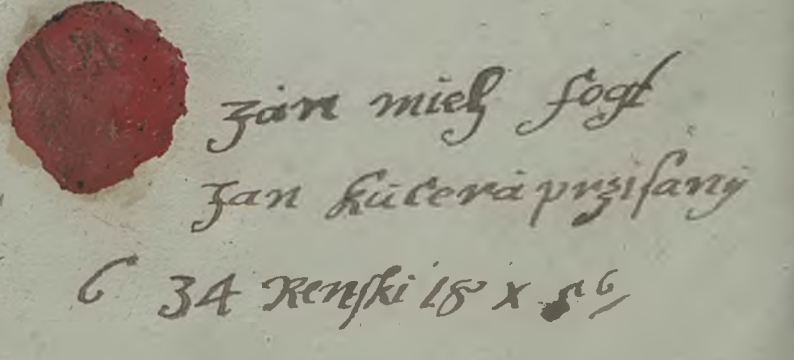 Jan mich fogt
Jan kucera przisany
6 34 Renski 18 x